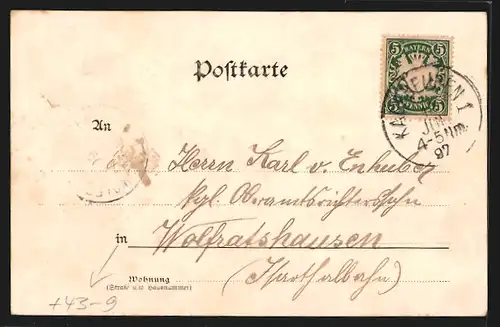 5 BAYERN 5
5 PFENNIG 5
Postkarte
JUN
4-5 Nm.
97
An
Herrn Karl v. Enhuber
kgl. Oberamtsrichterssohn
in Wolfratshausen
(Isarthalbahn)
Wohnung
(Straße und Hausnummer)
+43-9